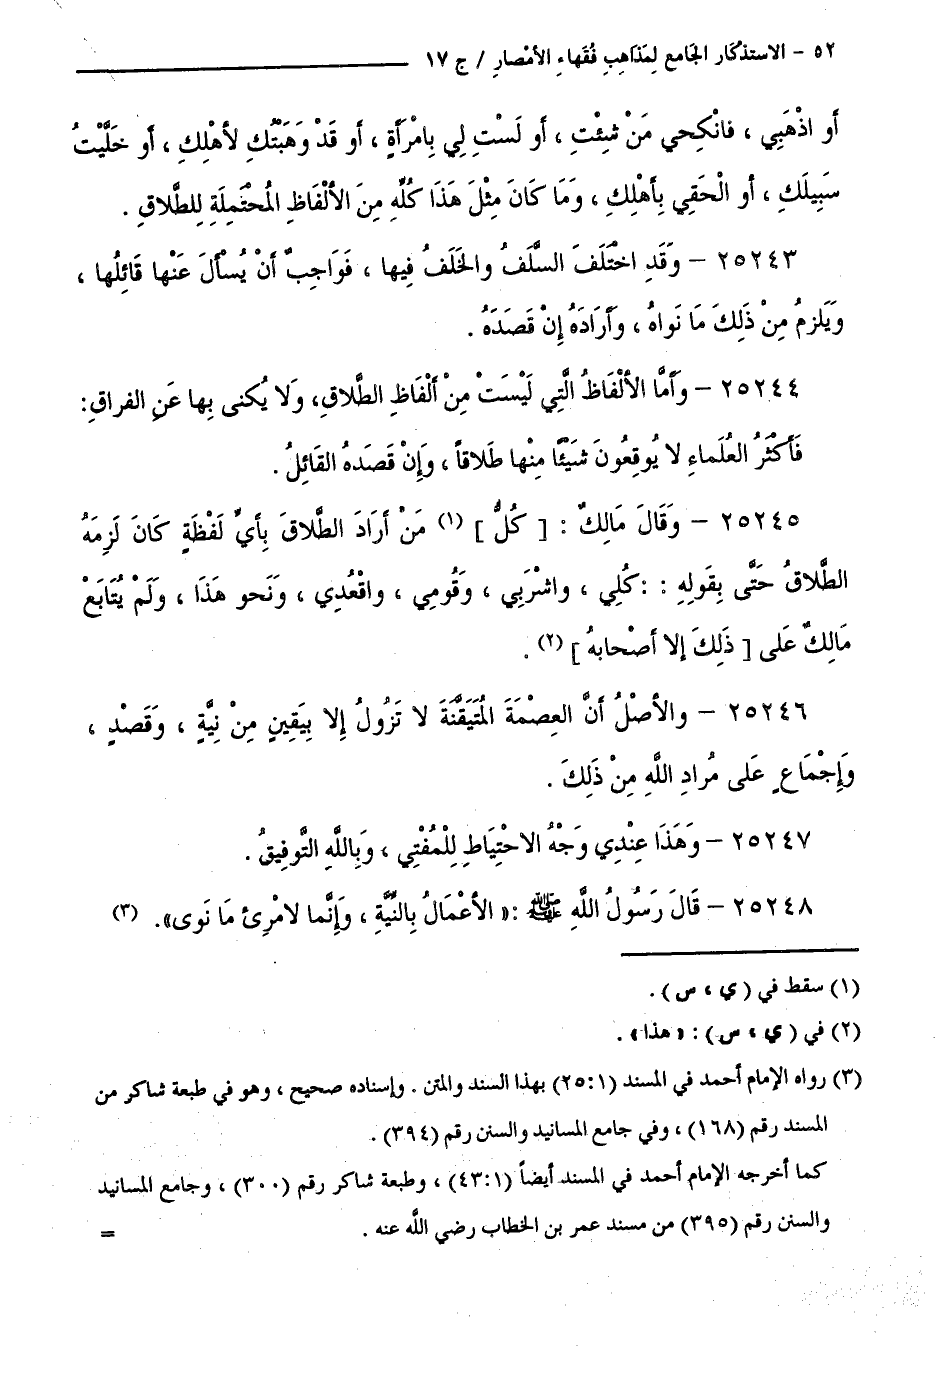 ٥٢ - الاستذكار الجامع لِمَذاهِبِ فُقَهاءِ الأمْصارِ / ج ١٧
أَو اذْهَبِي ، فانْكِحي مَنْ شِئْتِ ، أو لَسْتِ لِي بِامْرَأَةٍ ، أو قَدْ وَهَبْتُكِ لأهْلِكِ ، أو خَلَّيْتُ
سَبِيلَكِ ، أو الْحَقِي بِأَهْلِكِ ، وَمَا كَانَ مِثْلَ هَذَا كُلّهِ مِنَ الألْفَاظِ المُحْتَمِلَةِ لِلطَّلاقِ .
٢٥٢٤٣ - وَقَدِ اخْتَلَفَ السَّلَفُ والخَلَفُ فِيها ، فَوَاجِبٌ أنْ يُسْأَلَ عَنْها قَائِلُها ،
وَيَلزمُ مِنْ ذَلِكَ مَا نَواهُ ، وَأَرَادَهُ إنْ قَصَدَهُ .
٢٥٢٤٤ - وَأَمَّا الألْفَاظُ الَّتِي لَيْسَتْ مِنْ أَلْفَاظِ الطَّلاقِ، وَلا يُكنى بِها عَنِ الفراقِ:
فَأَكْثَرُ العُلَماءِ لا يُوقِعُونَ شَيْئًا مِنْها طَلاقاً ، وَإِنْ قَصَدَهُ القَائِلُ .
٢٥٢٤٥ - وَقَالَ مَالِكٌ : [ كُلُّ ] (١) مَنْ أرَادَ الطَّلاقَ بِأَيِّ لَفْظَةٍ كَانَ لَزِمَهُ
الطَّلاقُ حَتَّى بِقَولِهِ : :كُلِي ، واشْرَبِي ، وَقُومِي ، واقْعُدِي ، وَنَحو هَذَا ، وَلَمْ يُتَابَعْ
مَالِكٌ عَلى [ ذَلِكَ إلا أصْحابهُ ] (٢) .
٢٥٢٤٦ - والأصْلُ أنَّ العِصْمَةَ المُتَيَقَّنَةَ لا تَزُولُ إلا بِيَقِينٍ مِنْ نِيَّةٍ ، وَقَصْدٍ ،
وَإِجْمَاعٍ عَلى مُرادِ اللَّهِ مِنْ ذَلِكَ .
٢٥٢٤٧ - وَهَذَا عِنْدِي وَجْهُ الاحْتِيَاطِ لِلْمُفْتِي ، وَبِاللَّهِ التَّوفِيقُ .
٢٥٢٤٨ - قَالَ رَسُولُ اللَّهِ ﷺ :« الأعْمَالُ بِالنِّيَّةِ ، وَإنَّما لامْرِئ مَا نَوى». (٣)
(١) سقط في ( ي ، س ) .
(٢) في ( ي ، س ) : « هذا » .
(٣) رواه الإمام أحمد في المسند (٢٥:١) بهذا السند والمتن . وإسناده صحيح ، وهو في طبعة شاكر من
المسند رقم (١٦٨) ، وفي جامع المسانيد والسنن رقم (٣٩٤) .
كما أخرجه الإمام أحمد في المسند أيضاً (٤٣:١) ، وطبعة شاكر رقم (٣٠٠) ، وجامع المسانيد
والسنن رقم (٣٩٥) من مسند عمر بن الخطاب رضي اللَّه عنه . =